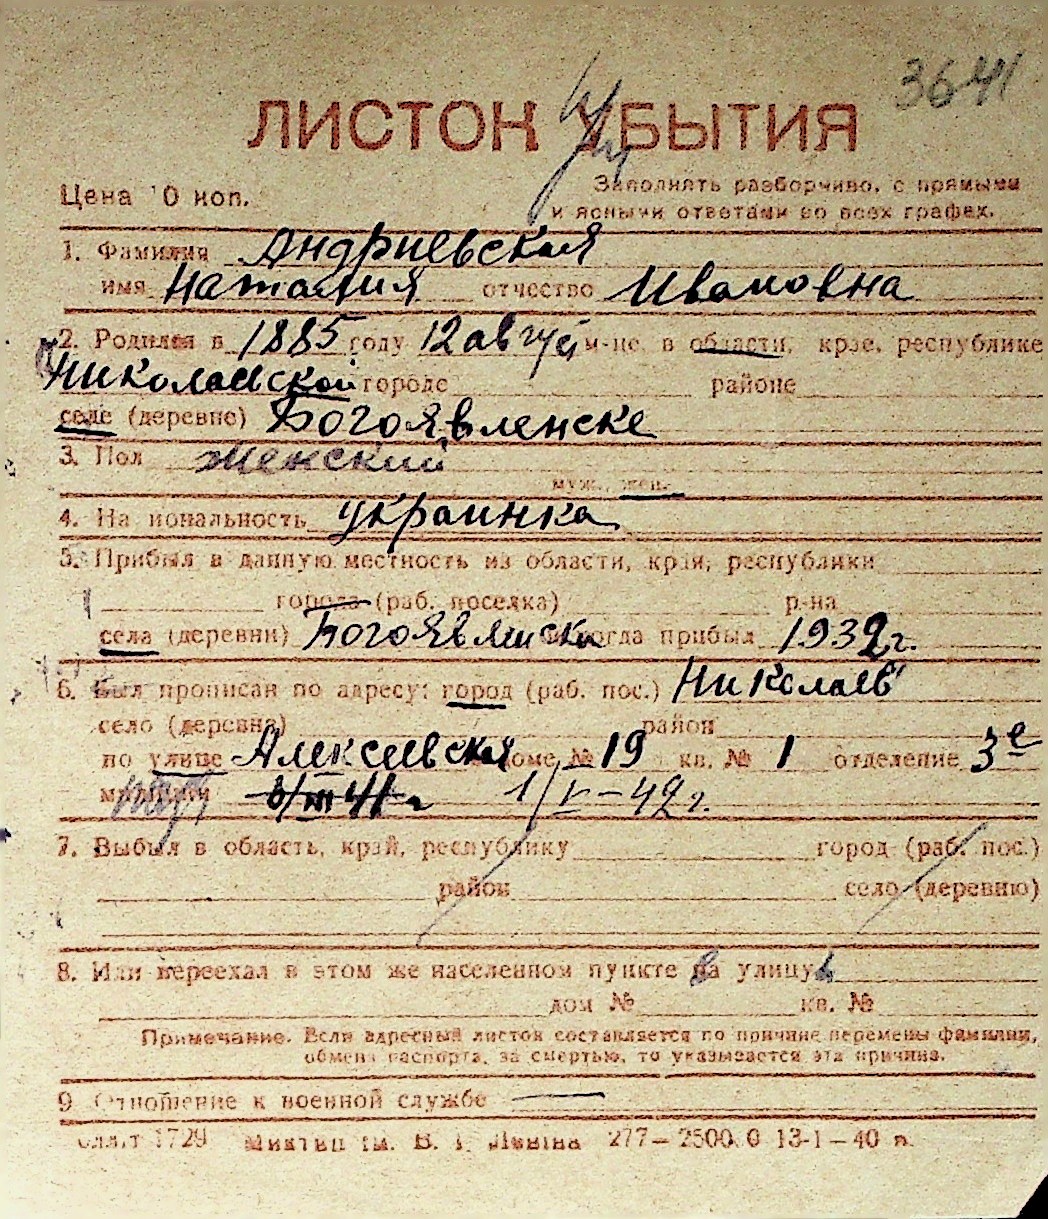 3641
ЛИСТОК УБЫТИЯ
Цена 10 коп.
Заполнять разборчиво, с прямыми
и ясными ответами во всех графах.
1. Фамилия Андриевская
имя Наталия отчество Ивановна
2. Родился в 1885 году 12 август м-це, в области, крае, республике
Николаевской городе районе
селе (деревне) Богоявленске
3. Пол женский
муж., жен.
4. Национальность украинка
5. Прибыл в данную местность из области, края, республики
города (раб. поселка) р-на
села (деревни) Богоявленска когда прибыл 1932 г.
6. Был прописан по адресу: город (раб. пос.) Николаев
село (деревня) район
по улице Алексеевская доме № 19 кв. № 1 отделение 3е
милиции 8/III 41 г 1/V-42 г.
7. Выбыл в область, край, республику город (раб. пос.)
район село (деревню)
8. Или переехал в этом же населенном пункте на улицу
дом № кв. №
Примечание. Если адресный листок составляется по причине перемены фамилии,
обмена паспорта, за смертью, то указывается эта причина.
9 Отношение к военной службе —
1729 им. В. Ленина 277—2500.0 13-1—40 п.